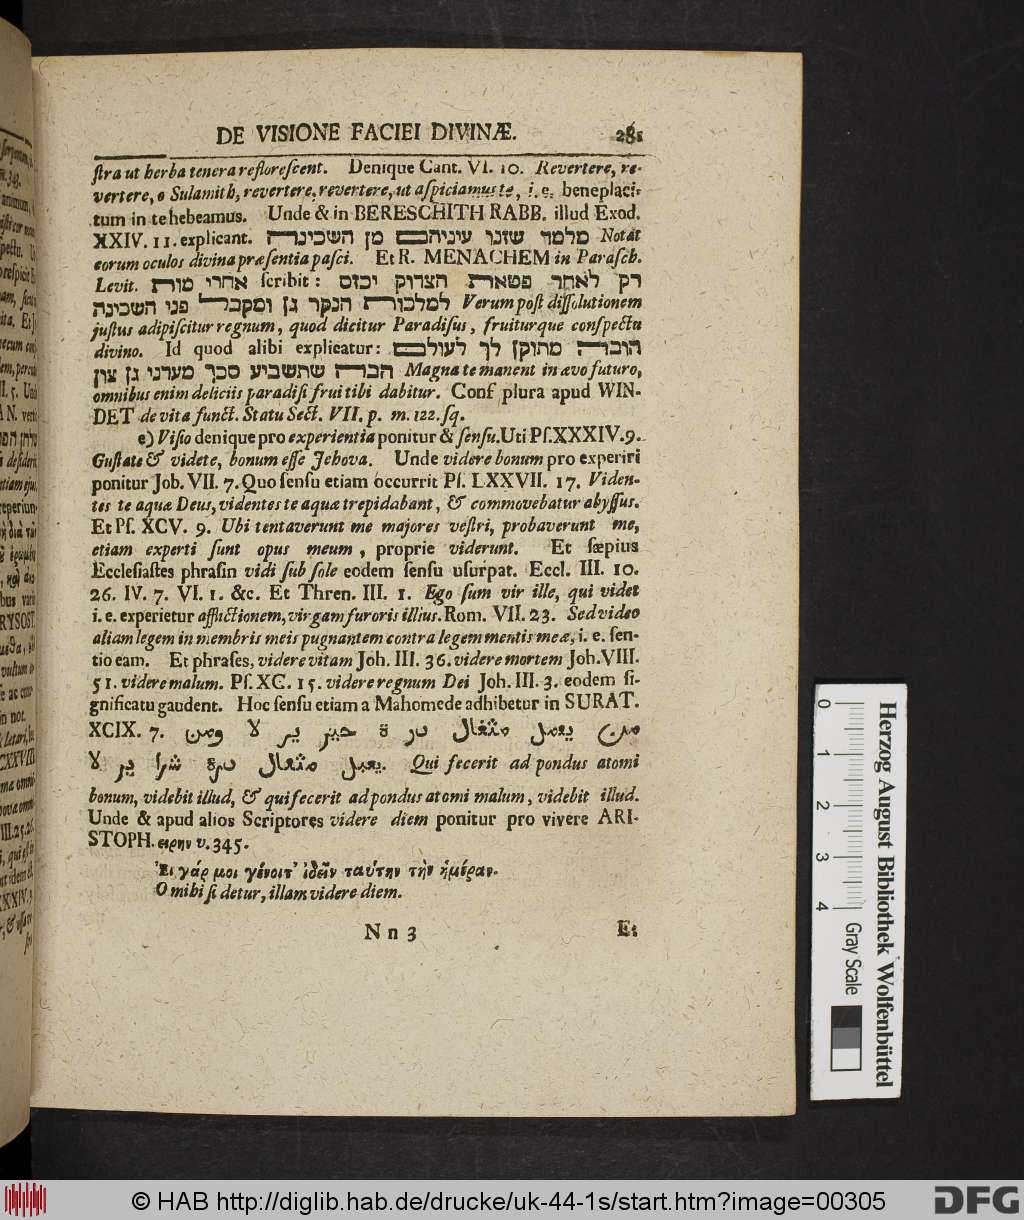 DE VISIONE FACIEI DIVINÆ. 281
ſtra ut herba tenera refloreſcent. Denique Cant. VI. 10. Revertere, re-
vertere, o Sulamith, revertere, revertere, ut aſpiciamus te, i. e. beneplaci-
tum in te hebeamus. Unde & in BERESCHITH RABB. illud Exod.
XXIV. 11. explicant. מלמד שזנו עיניהם מן השכינה Notat
eorum oculos divina præſentia paſci. Et R. MENACHEM in Paraſch.
Levit. scribit: רק לאחר פטארת הצדוק יכזס אחרי מות
למלכות הנקר גן ומקבל פני השכינה Verum poſt diſſolutionem
juſtus adipiſcitur regnum, quod dicitur Paradiſus, fruiturque conſpectu
divino. Id quod alibi explicatur: הוברה מתוקן לך לעולם
הברה שתשביע סכך מערני גן צון Magna te manent in ævo futuro,
omnibus enim deliciis paradiſi frui tibi dabitur. Conf plura apud WIN-
DET de vita funct. Statu Sect. VII. p. m. 122. ſq.
e) Viſio denique pro experientia ponitur & ſenſu. Uti Pſ. XXXIV. 9.
Guſtate & videte, bonum eſſe Jehova. Unde videre bonum pro experiri
ponitur Job. VII. 7. Quo ſenſu etiam occurrit Pſ. LXXVII. 17. Viden-
tes te aquæ Deus, videntes te aquæ trepidabant, & commovebatur abyſſus.
Et Pſ. XCV. 9. Ubi tentaverunt me majores veſtri, probaverunt me,
etiam experti ſunt opus meum, proprie viderunt. Et ſæpius
Eccleſiaſtes phraſin vidi ſub ſole eodem ſenſu uſurpat. Eccl. III. 10.
26. IV. 7. VI. 1. &c. Et Thren. III. 1. Ego ſum vir ille, qui videt
i. e. experietur afflictionem, virgam furoris illius. Rom. VII. 23. Sed video
aliam legem in membris meis pugnantem contra legem mentis meæ, i. e. ſen-
tio eam. Et phraſes, videre vitam Joh. III. 36. videre mortem Joh. VIII.
51. videre malum. Pſ. XC. 15. videre regnum Dei Joh. III. 3. eodem ſi-
gnificatu gaudent. Hoc ſenſu etiam a Mahomede adhibetur in SURAT.
XCIX. 7. من يعمل مثقال در ة خير ير لا ومن
يعمل مثقال درة شرا ير لا. Qui fecerit ad pondus atomi
bonum, videbit illud, & qui fecerit ad pondus atomi malum, videbit illud.
Unde & apud alios Scriptores videre diem ponitur pro vivere ARI-
STOPH. ειρην v. 345.
Ἐι γάρ μοι γένοιτ' ἰδεῖν ταύτην τὴν ἡμέραν.
O mihi ſi detur, illam videre diem.
N n 3 Et
0 1 2 3 4
Gray Scale
Herzog August Bibliothek Wolfenbüttel
© HAB http://diglib.hab.de/drucke/uk-44-1s/start.htm?image=00305
DFG